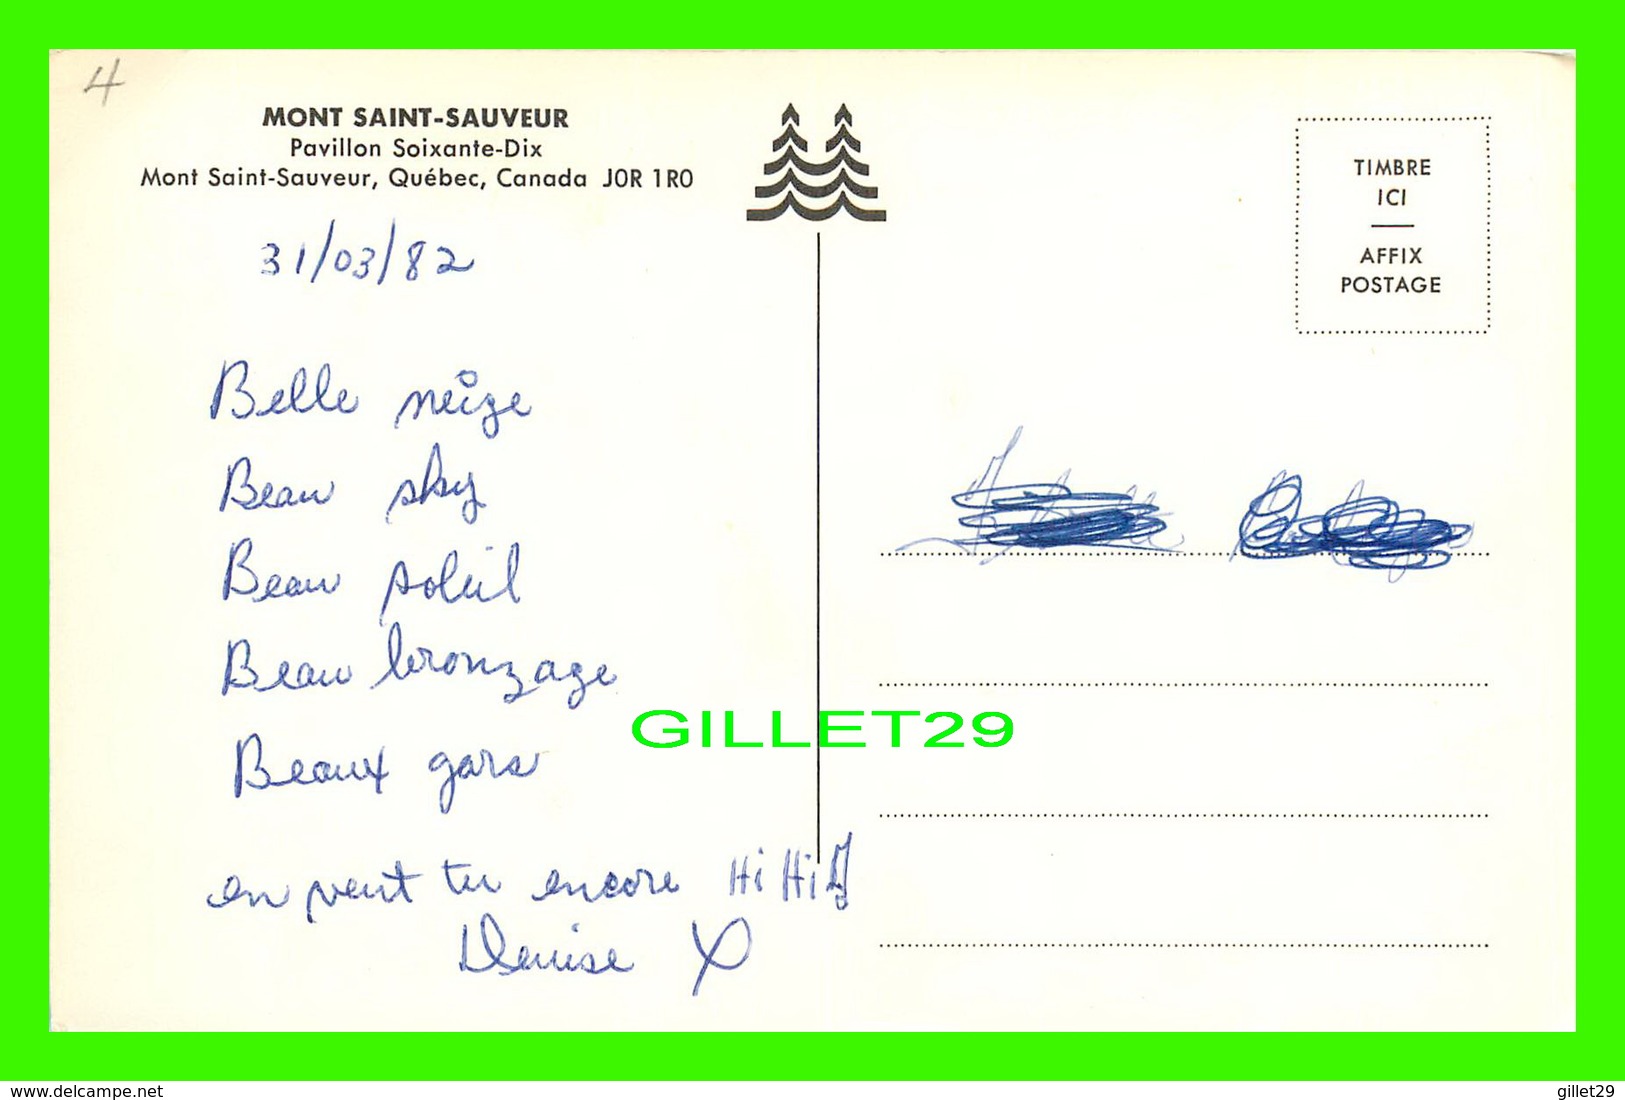 4
MONT SAINT-SAUVEUR
Pavillon Soixante-Dix
Mont Saint-Sauveur, Québec, Canada J0R 1R0
31/03/82
Belle neige
Beau sky
Beau soleil
Beau bronzage
Beaux gars
en veut tu encore Hi Hi!
Denise X
TIMBRE
ICI
AFFIX
POSTAGE
GILLET29
www.delcampe.net
gillet29